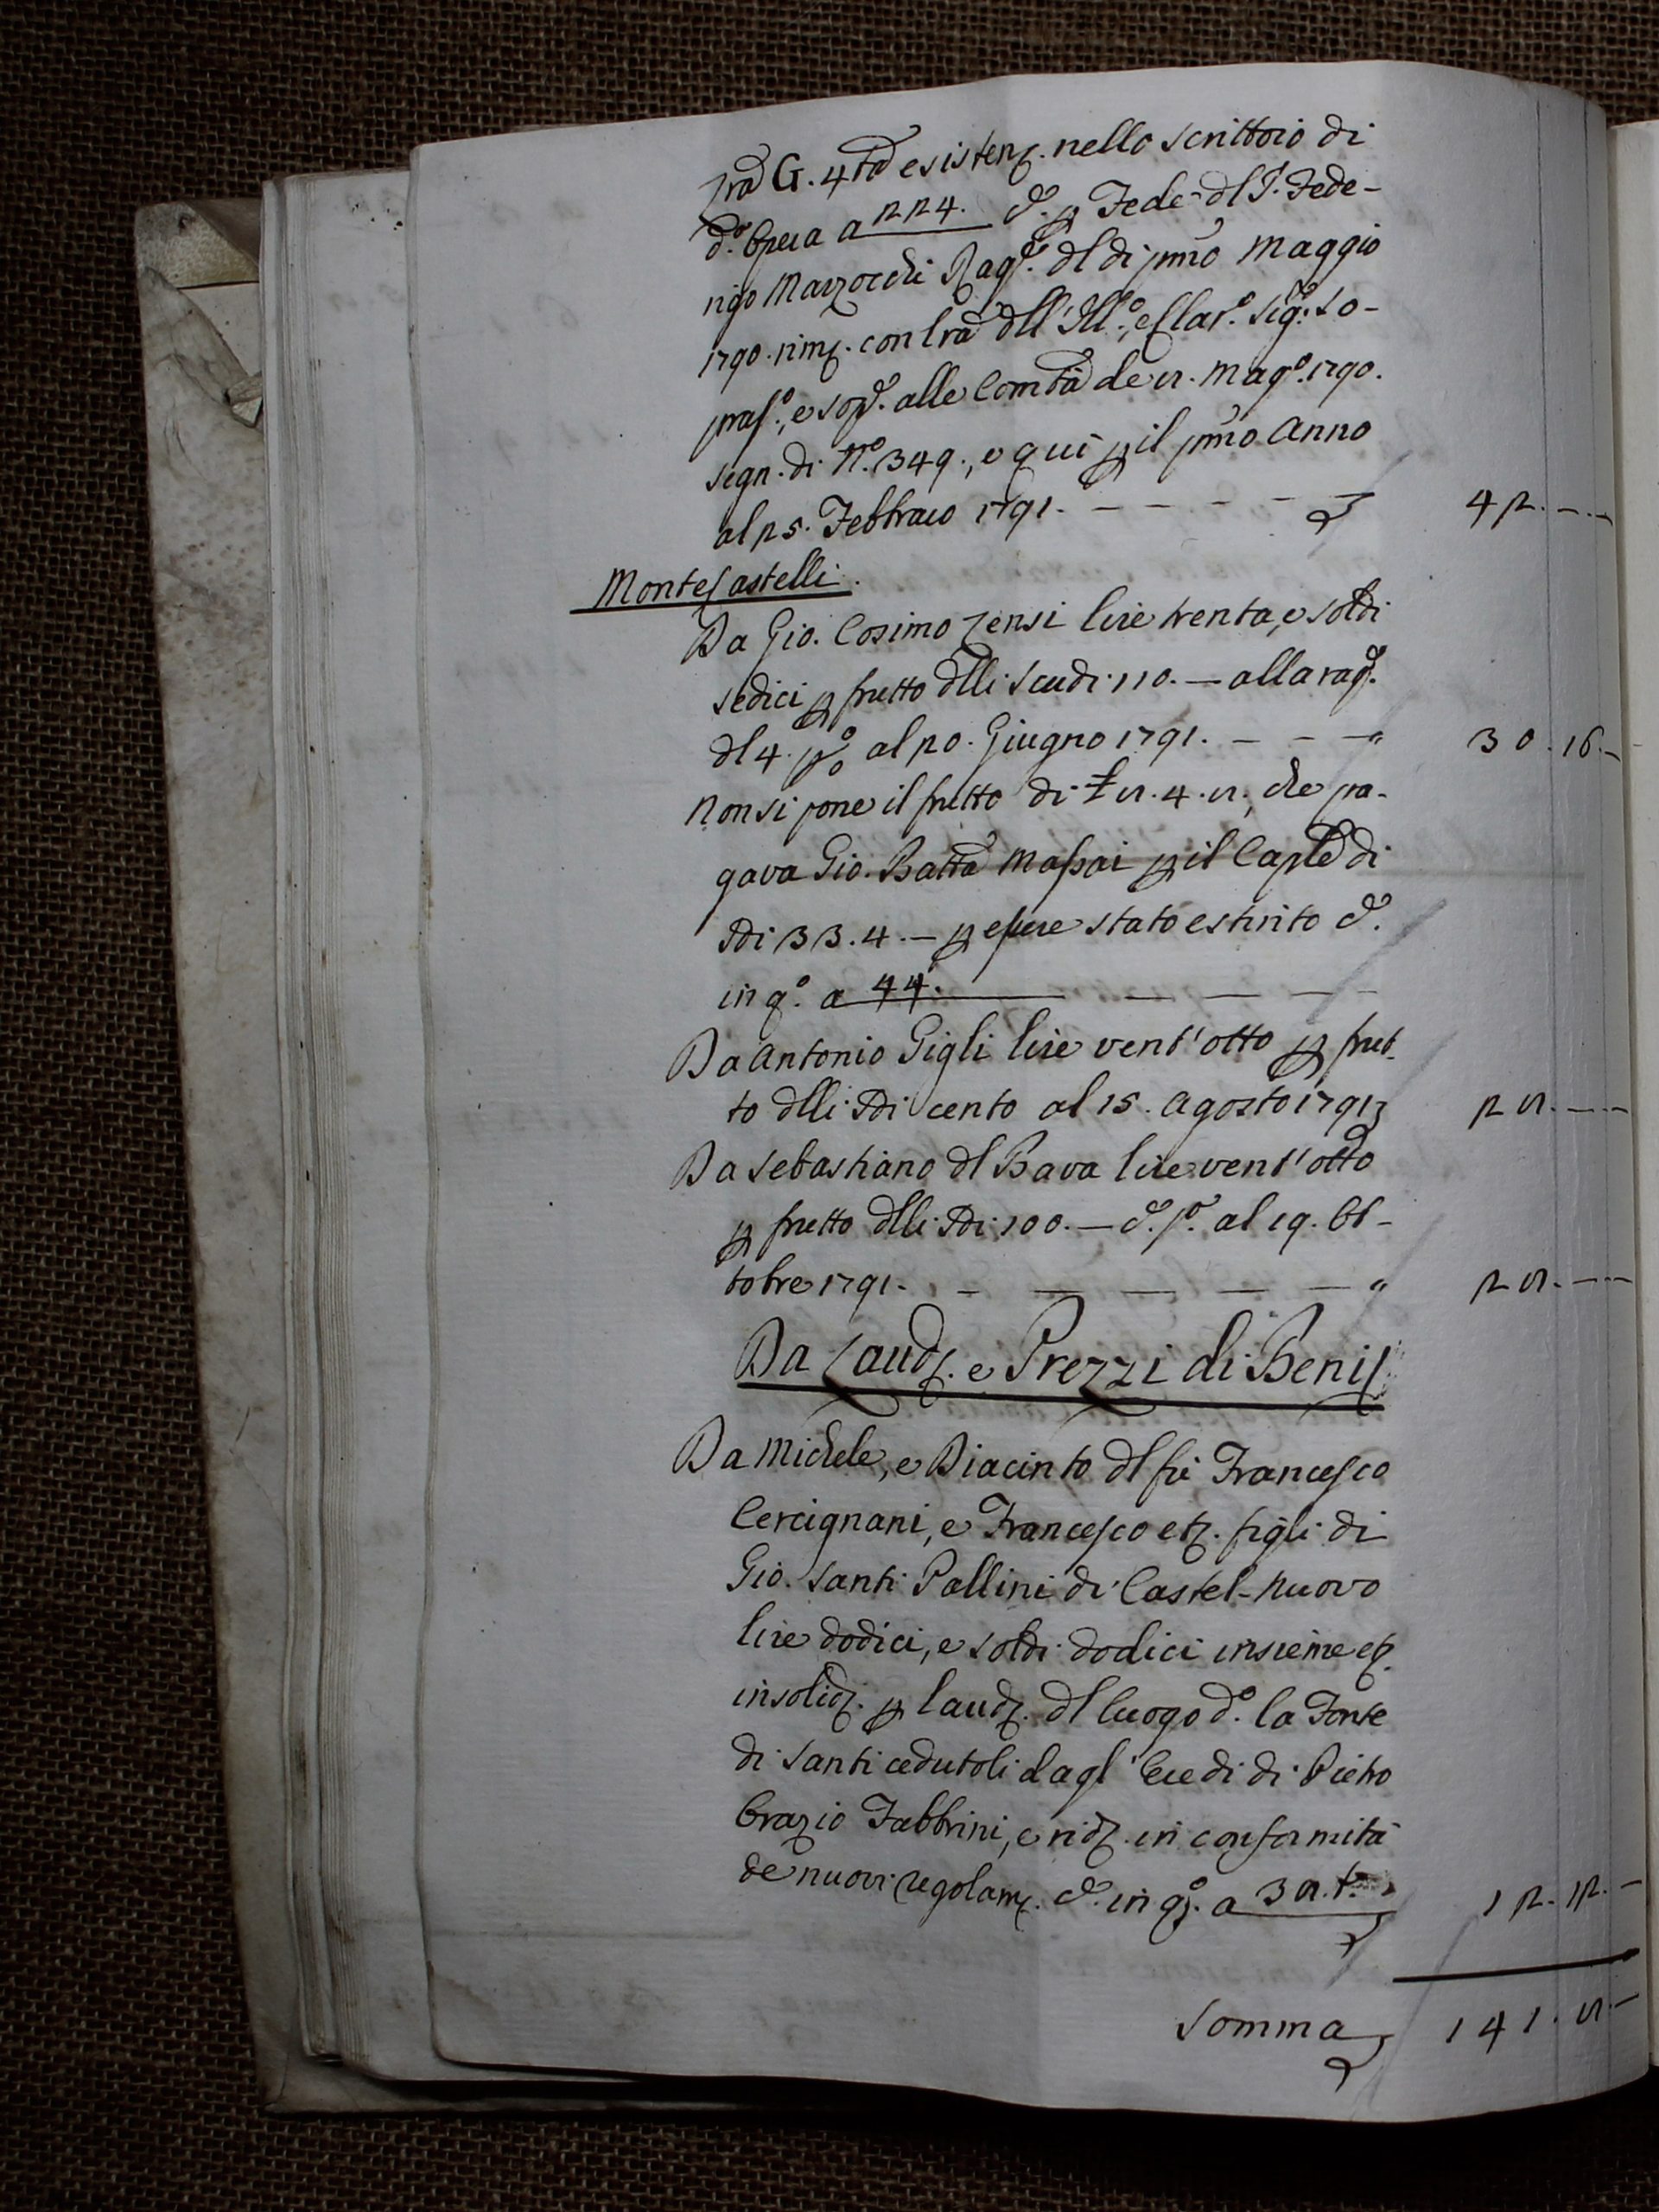 G. 4tã esistenz. nello scrittoio di
d.º Opera a 224. &. p Fede dl S. Fede-
rigo Marzocchi Rag.e dl di pmo Maggio
1790. rimz. con lrã dll'Ill.º, e Clar.º Sig.e So-
pras.º, e sopd. alle Comtà de 8. Mag.º 1790.
segn. di N.º 349., e qui p il pmo Anno
al 25. Febbraio 1791. - - - - - 42. - . -
MonteCastelli.
Da Gio. Cosimo Zensi lire trenta, e soldi
sedici p frutto dlli Scudi 110. — alla rag.e
dl 4. p º/o al 20. Giugno 1791. - - - " 30. 16. -
Non si pone il frutto di £ 8. 4. 8., che pa-
gava Gio. Battã Massai p il Caple di
Sdi 33. 4. — p essere stato estinto &.
in q.º a 44. — — — —
Da Antonio Gigli lire vent'otto p frut-
to dlli Sdi cento al 15. Agosto 1791 28. - . -
Da Sebastiano dl Bava lire vent'otto
p frutto dlli Sdi 100. — &. p.º al 19. Ot-
tobre 1791. - — — — — " 28. - . -
Da Laudz. e Prezzi di Beni
Da Michele, e Diacinto dl fù Francesco
Cercignani, e Francesco etz. figli di
Gio. Santi Pallini di Castel-nuovo
lire dodici, e soldi dodici insieme etz.
insolidz. p laudz. dl luogo d.º la Fonte
di Santi cedutoli dagl'Eredi di Pietro
Orazio Fabbrini, e ridz. in conformità
de nuovi regolamz. &. in q.º a 38. t.º 12. 12. -
Somma 141. 8. -